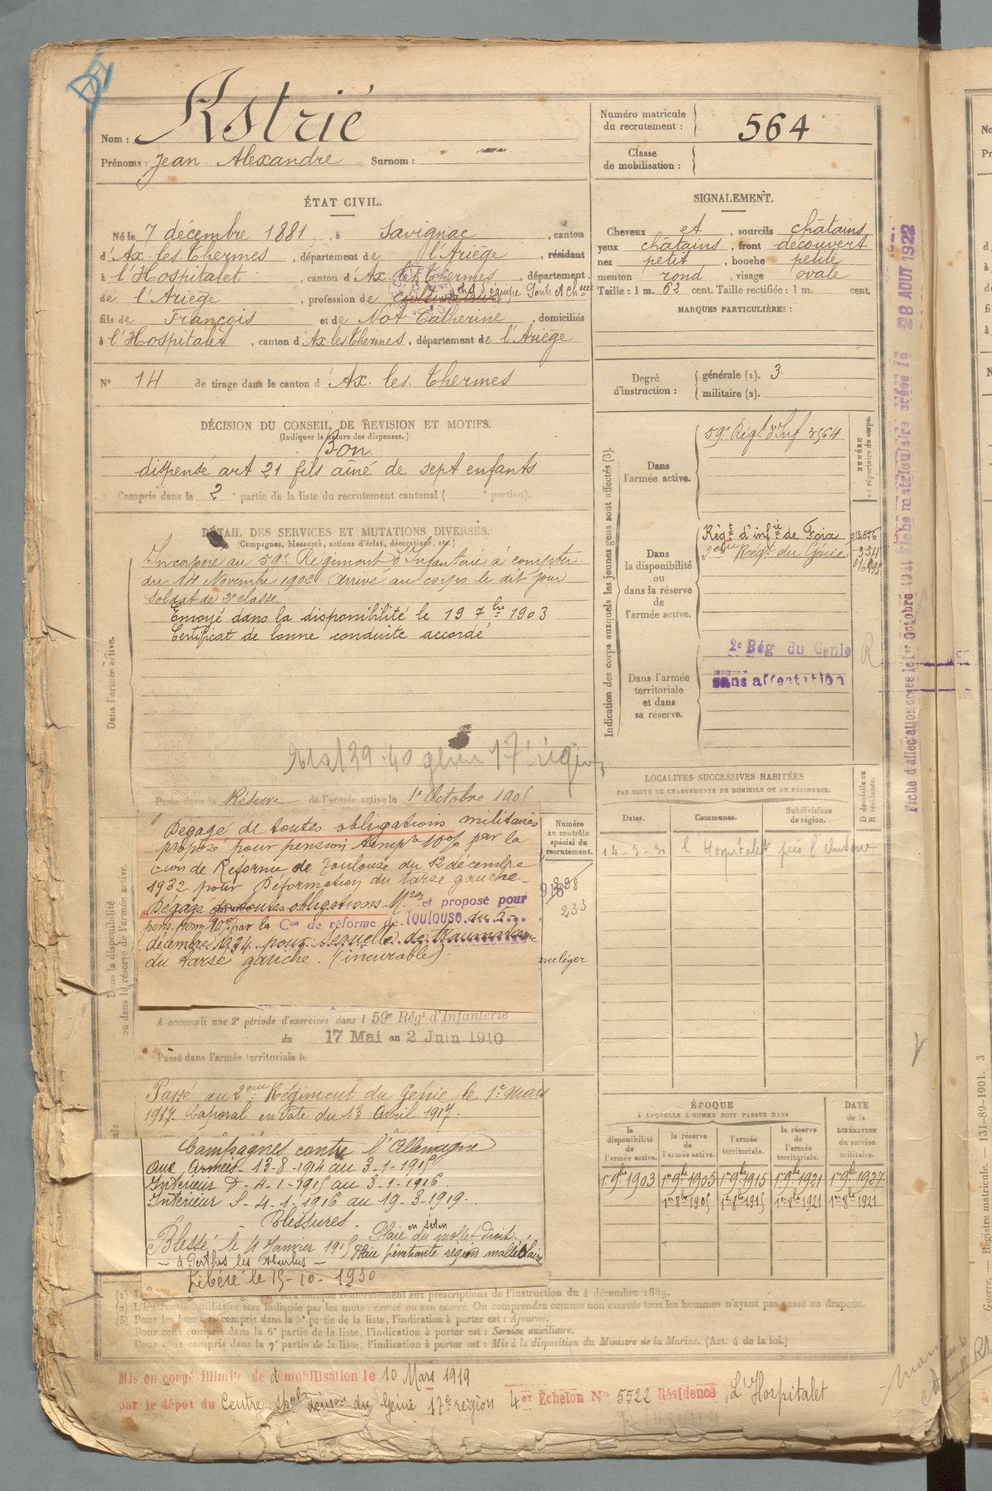 Nom : Astrié
Prénoms : Jean Alexandre Surnom :
Numéro matricule du recrutement : 564
Classe de mobilisation :
ÉTAT CIVIL.
Né le 7 décembre 1881, à Savignac, canton
d'Ax les Thermes, département de l'Ariège, résidant
à l'Hospitalet, canton d'Ax les Thermes, département
de l'Ariège, profession de cultivateur équipe Ponts et Chées
fils de François et de Not Catherine, domiciliés
à l'Hospitalet, canton d'Ax les Thermes, département de l'Ariège
N° 14 de tirage dans le canton d'Ax les Thermes
SIGNALEMENT.
Cheveux et sourcils châtains,
yeux châtains, front découvert
nez petit, bouche petite
menton rond, visage ovale
Taille : 1 m. 62 cent. Taille rectifiée : 1 m. cent.
MARQUES PARTICULIÈRES :
Degré d'instruction : générale (1). 3
militaire (2).
DÉCISION DU CONSEIL DE RÉVISION ET MOTIFS.
(Indiquer la nature des dispenses.)
Bon
dispensé art 21 fils aîné de sept enfants
Compris dans la 2e partie de la liste du recrutement cantonal ( e portion).
DÉTAIL DES SERVICES ET MUTATIONS DIVERSES.
(Campagnes, blessures, actions d'éclat, décorations, etc.)
Dans l'armée active.
Incorporé au 59e Régiment d'Infanterie à compter
du 14 Novembre 1902 arrivé au corps le dit jour
Soldat de 2e classe
Envoyé dans la disponibilité le 19 7bre 1903
Certificat de bonne conduite accordé
Passé dans la Réserve de l'armée active le 1er Octobre 190
Dans la disponibilité ou dans la réserve de l'armée active.
Dégagé de toutes obligations militaires
proposé pour pension temp 10% par la
cion de Réforme de Toulouse du 12 décembre
1932 pour Déformation du tarse gauche.
Dégagé de toutes obligations Mres et proposé pour
pens. perm 10% par la Con de réforme de Toulouse du 5
décembre 1934 pour sequelles de traumatisme
du tarse gauche. (incurable)
A accompli une 2e période d'exercices dans l 59e Rég. d'Infanterie
du 17 Mai au 2 Juin 1910
Passé dans l'armée territoriale le
Passé au 2ème Régiment du Génie le 1er mars
1917. Caporal en date du 13 Avril 1917.
Campagnes contre l'Allemagne
Aux Armées 13-8-1914 au 3-1-1915
Intérieur D. 4-1-1915 au 3-1-1916
Intérieur S. 4-1-1916 au 19-3-1919.
Blessures.
Blessé le 4 Janvier 1915 Plaie en séton du mollet droit.
Plaie pénétrante région malléolaire
à Perthes les Hurlus
Libéré le 15-10-1930
Indication des corps auxquels les jeunes gens sont affectés (3).
NUMÉRO au répertoire du corps.
Dans l'armée active. 59e Régt d'Inf 2564
Dans la disponibilité ou dans la réserve de l'armée active.
Régt d'infrie de Foix
2ème Régt du Génie
Dans l'armée territoriale et dans sa réserve.
2e Rég du Génie
sans affectation
LOCALITÉS SUCCESSIVES HABITÉES
PAR SUITE DE CHANGEMENTS DE DOMICILE OU DE RÉSIDENCE.
Numéro au contrôle spécial du recrutement.
Dates. Communes. Subdivisions de région. D domicile ou R résidence.
14-3-31 l'Hospitalet près l'Andorre
233
ÉPOQUE
À LAQUELLE L'HOMME DOIT PASSER DANS
la disponibilité de l'armée active. la réserve de l'armée active. l'armée territoriale. la réserve de l'armée territoriale.
DATE de la LIBÉRATION du service militaire.
1er 9bre 1903 1er 9bre 1905 1er 9bre 1915 1er 9bre 1921 1er 9bre 1927
1er 8bre 1905 1er 8bre 1915 1er 8bre 1921
(2) L'instruction militaire sera indiquée par les mots : exercé ou non exercé. On comprendra comme non exercés tous les hommes n'ayant pas passé au drapeau.
(3) Pour les hommes compris dans la 5e partie de la liste, l'indication à porter est : Ajourné.
Pour ceux compris dans la 6e partie de la liste, l'indication à porter est : Service auxiliaire.
Pour ceux compris dans la 7e partie de la liste, l'indication à porter est : Mis à la disposition du Ministre de la Marine. (Art. 4 de la loi.)
Mis en congé illimité de démobilisation le 10 Mars 1919
par le dépôt du Centre du Génie 17e région 4er Echelon N° 5522 Résidence L'Hospitalet
28 AOUT 1922
Registre matricule. — 131-89-1901. 3